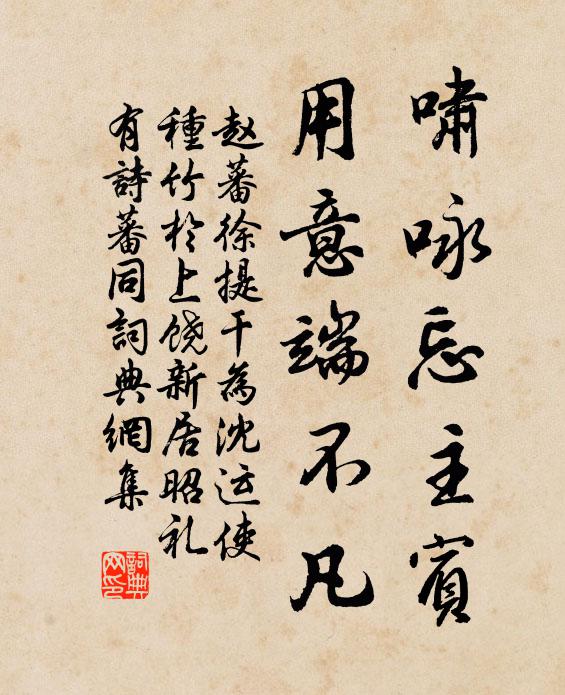 啸咏忘主賓
用意端不凡
赵蕃徐提干為沈运使
種竹於上饶新居昭礼
有詩蕃同詞典網集
詞典
网印